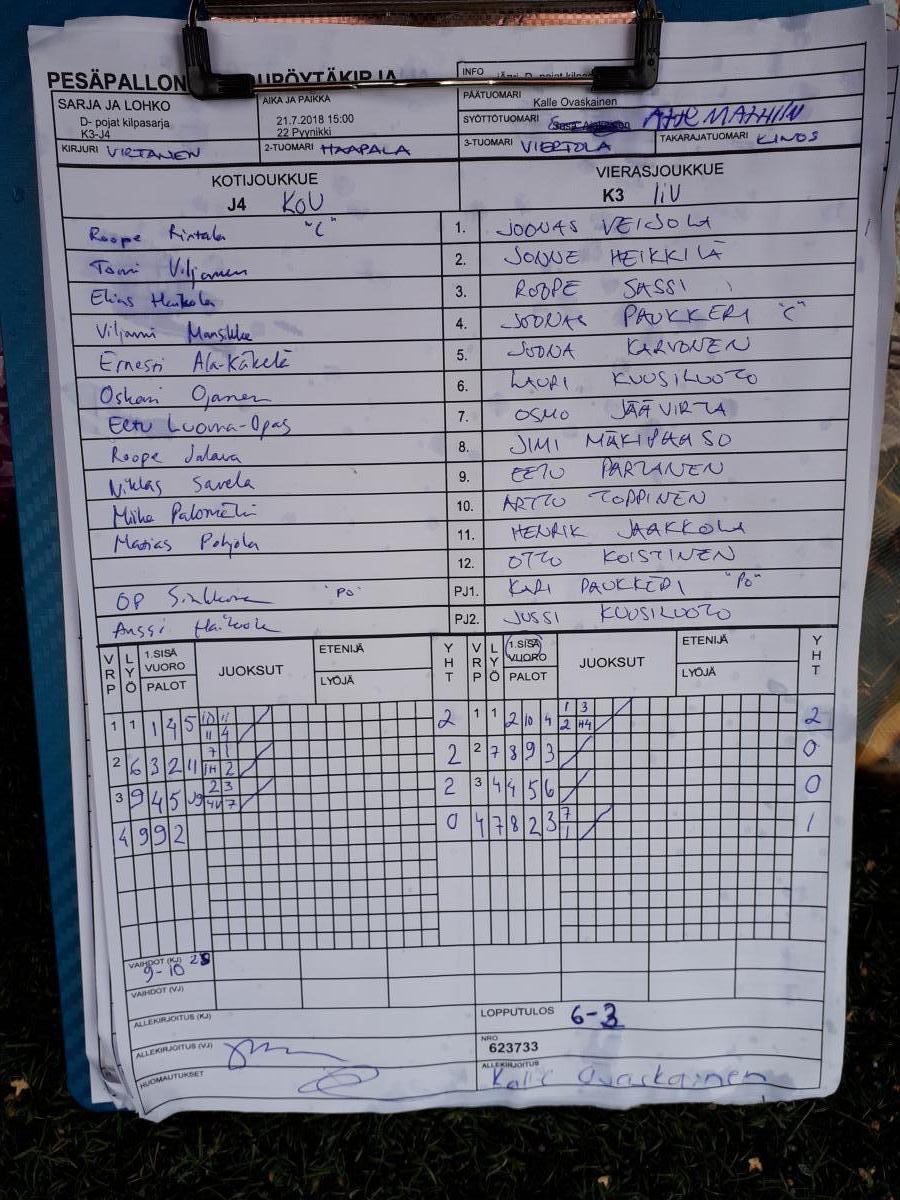 PESÄPALLON
INFO
SARJA JA LOHKO
D- pojat kilpasarja
K3-J4
AIKA JA PAIKKA
21.7.2018 15:00
22 Pyynikki
PÄÄTUOMARI Kalle Ovaskainen
SYÖTTÖTUOMARI
KIRJURI VIRTANEN
2-TUOMARI HAAPALA
3-TUOMARI VIERTOLA
TAKARAJATUOMARI
KOTIJOUKKUE
J4 KoU
VIERASJOUKKUE
K3
Roope Rintala "C" 1. JOONAS VEIJOLA
Tomi Viljanen 2. JONNE HEIKKILÄ
Elias 3. ROOPE SASSI
Viljami Mansikka 4. JOONAS PAUKKERI "C"
Ernesti Ala-Käkelä 5. JOONA KARVONEN
Oskari Ojanen 6. LAURI KUUSILUOTO
Eetu Luoma-Opas 7. OSMO JÄÄVIRTA
Roope Jalava 8. JIMI MÄKIPAASO
Niklas Savela 9. EETU PARTANEN
Miika Palomäki 10. ARTTO TOPPINEN
Matias Pohjola 11. HENRIK JAAKKOLA
12. OTTO KOISTINEN
OP "PO" PJ1. KARI PAUKKERI "PO"
Anssi PJ2. JUSSI KUUSILUOTO
VRP LYÖ 1.SISÄ VUORO PALOT JUOKSUT ETENIJÄ LYÖJÄ YHT VRP LYÖ 1.SISÄ VUORO PALOT JUOKSUT ETENIJÄ LYÖJÄ YHT
1 1 1 4 5 2 1 1 2 10 4 2
2 6 3 2 11 2 2 7 8 9 3 0
3 9 4 5 2 3 4 4 5 6 0
4 9 9 2 0 4 7 8 2 3 1
VAIHDOT (KJ)
9-10
VAIHDOT (VJ)
ALLEKIRJOITUS (KJ)
LOPPUTULOS 6-3
ALLEKIRJOITUS (VJ)
NRO
623733
HUOMAUTUKSET
ALLEKIRJOITUS
Kalle Ovaskainen